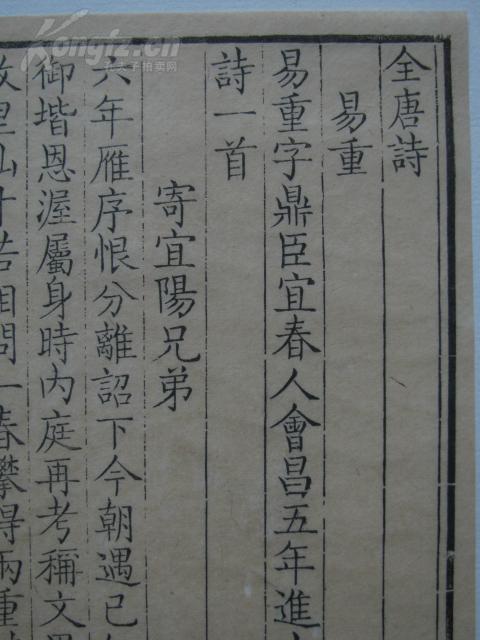 全唐詩
易重
易重字鼎臣宜春人會昌五年進
詩一首
寄宜陽兄弟
六年雁序恨分離詔下今朝遇已
御堦恩渥屬身時內庭再考稱文
里仙才若相問一春攀得兩重
Kongfz.cn
孔夫子拍卖网